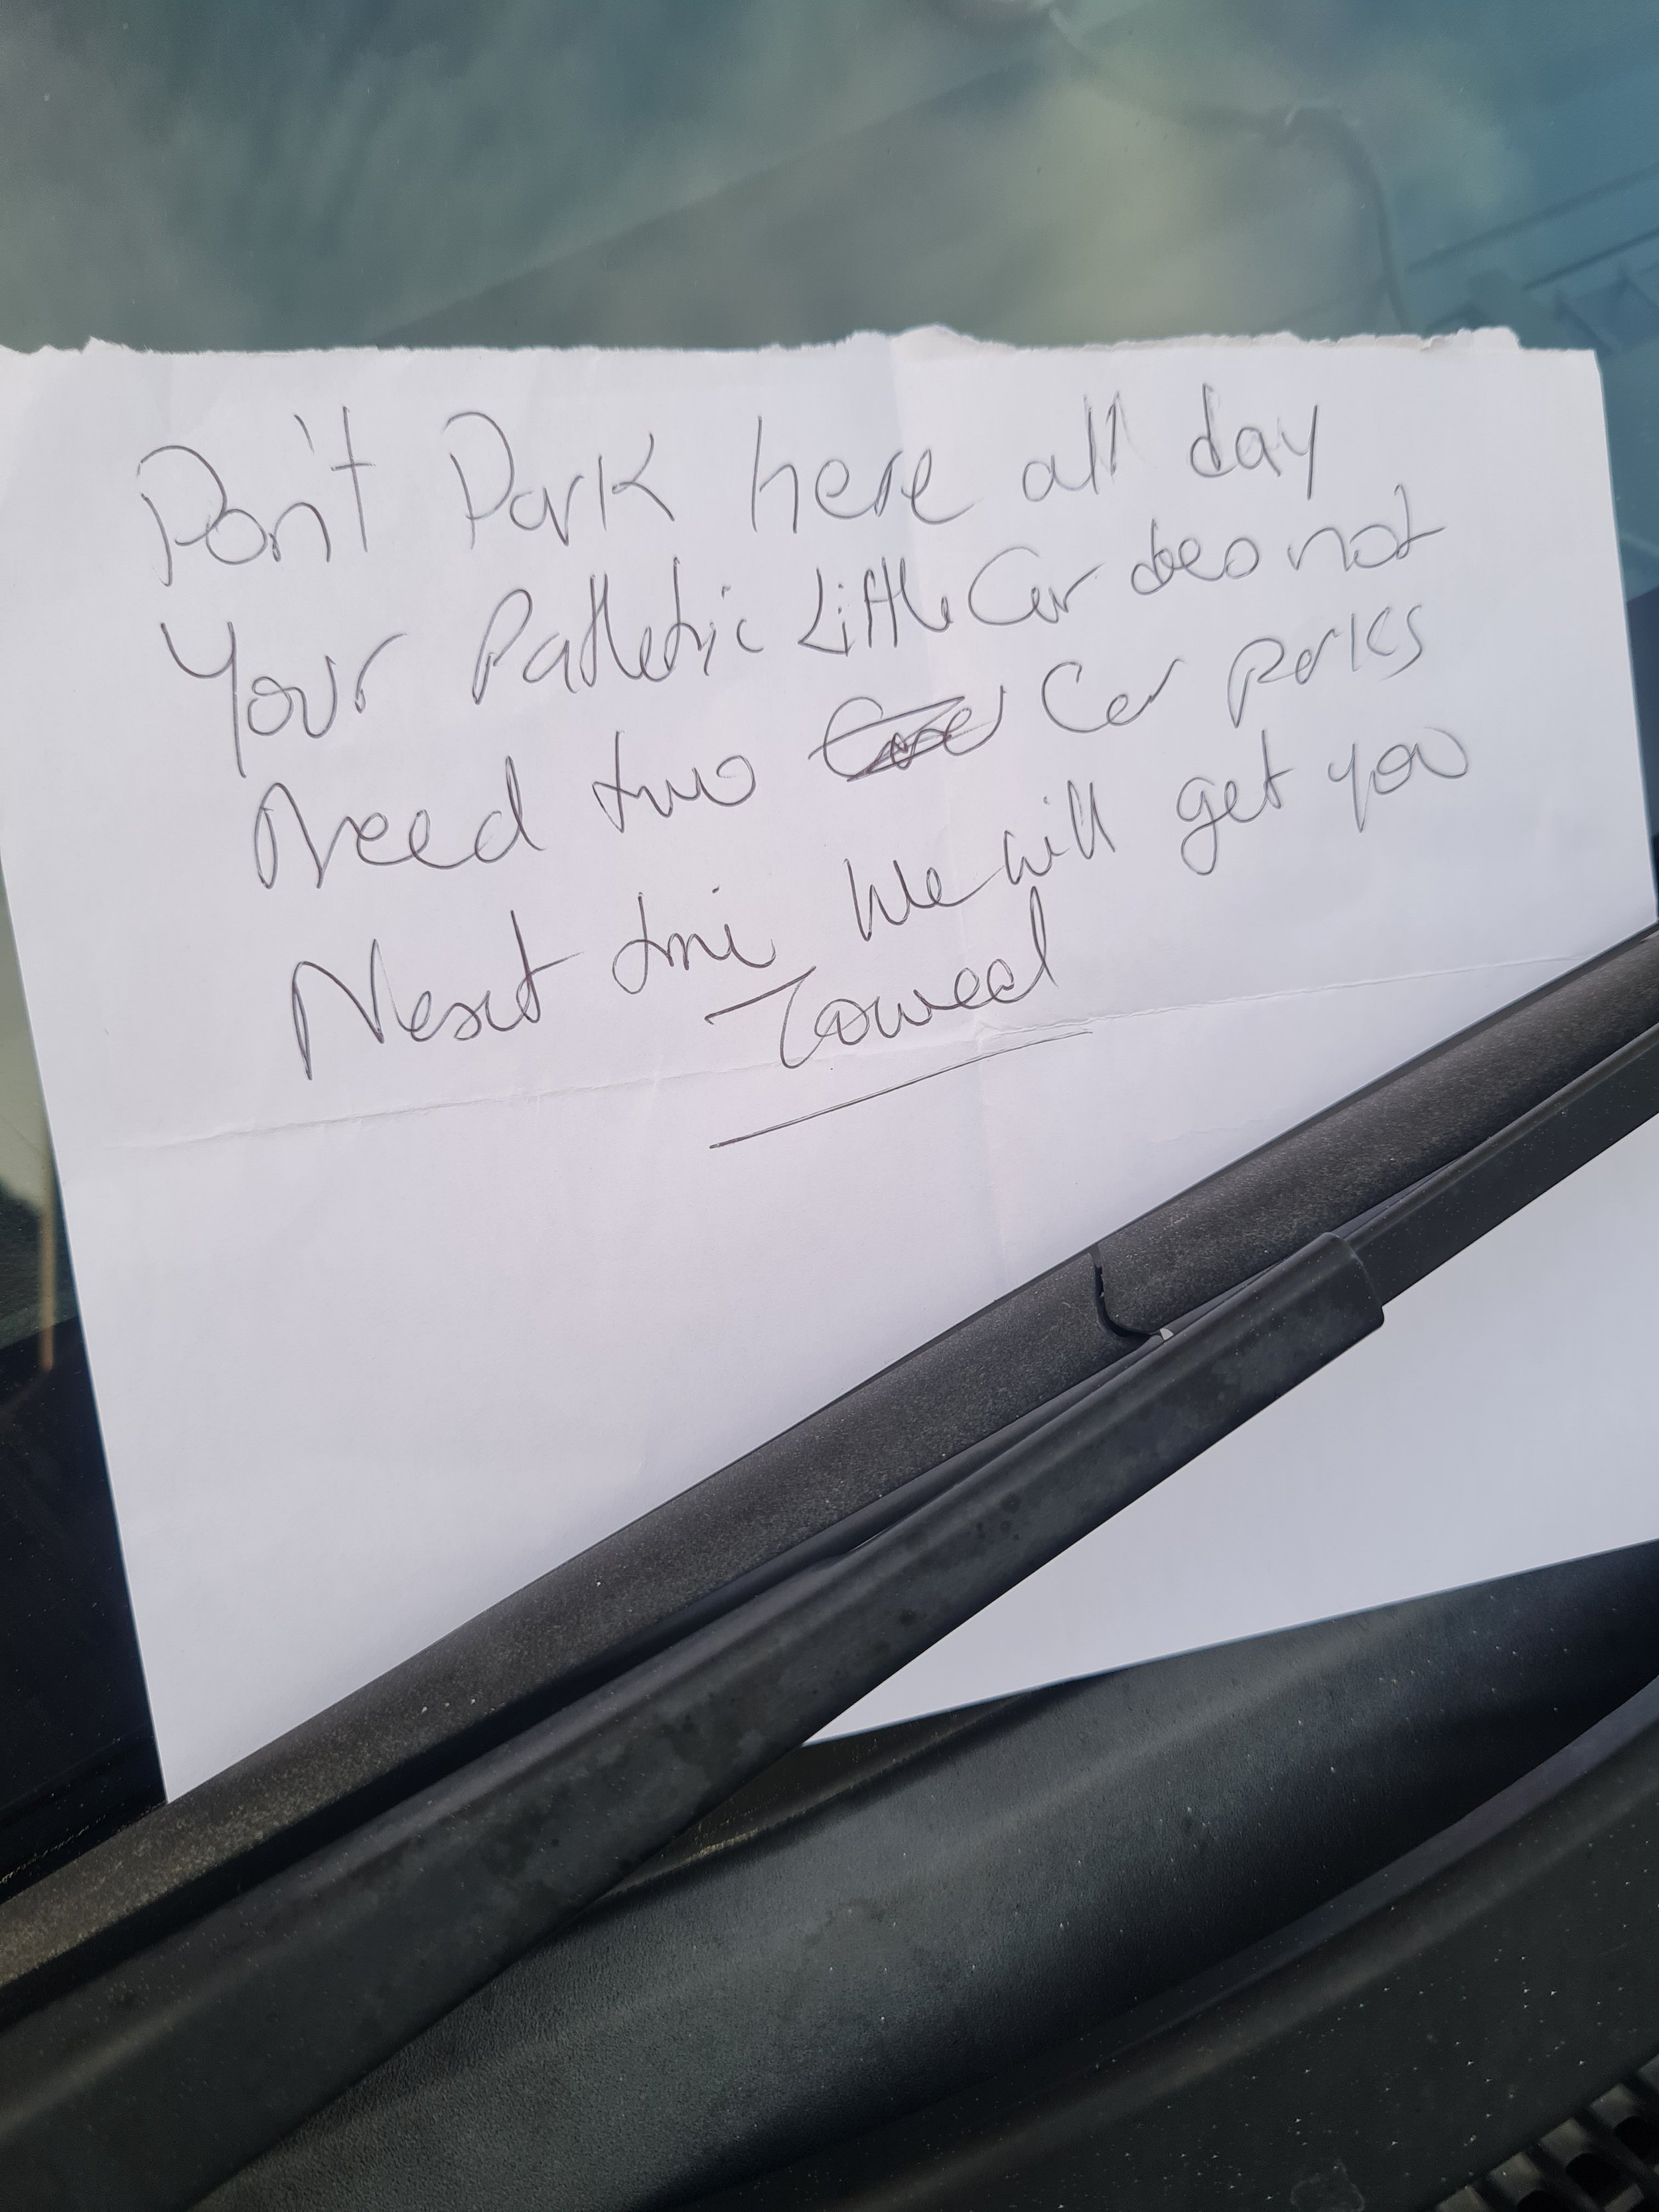 Don't Park here all day
Your Pathetic Little Car does not
Need two Car parks
Next time We will get you
Towed